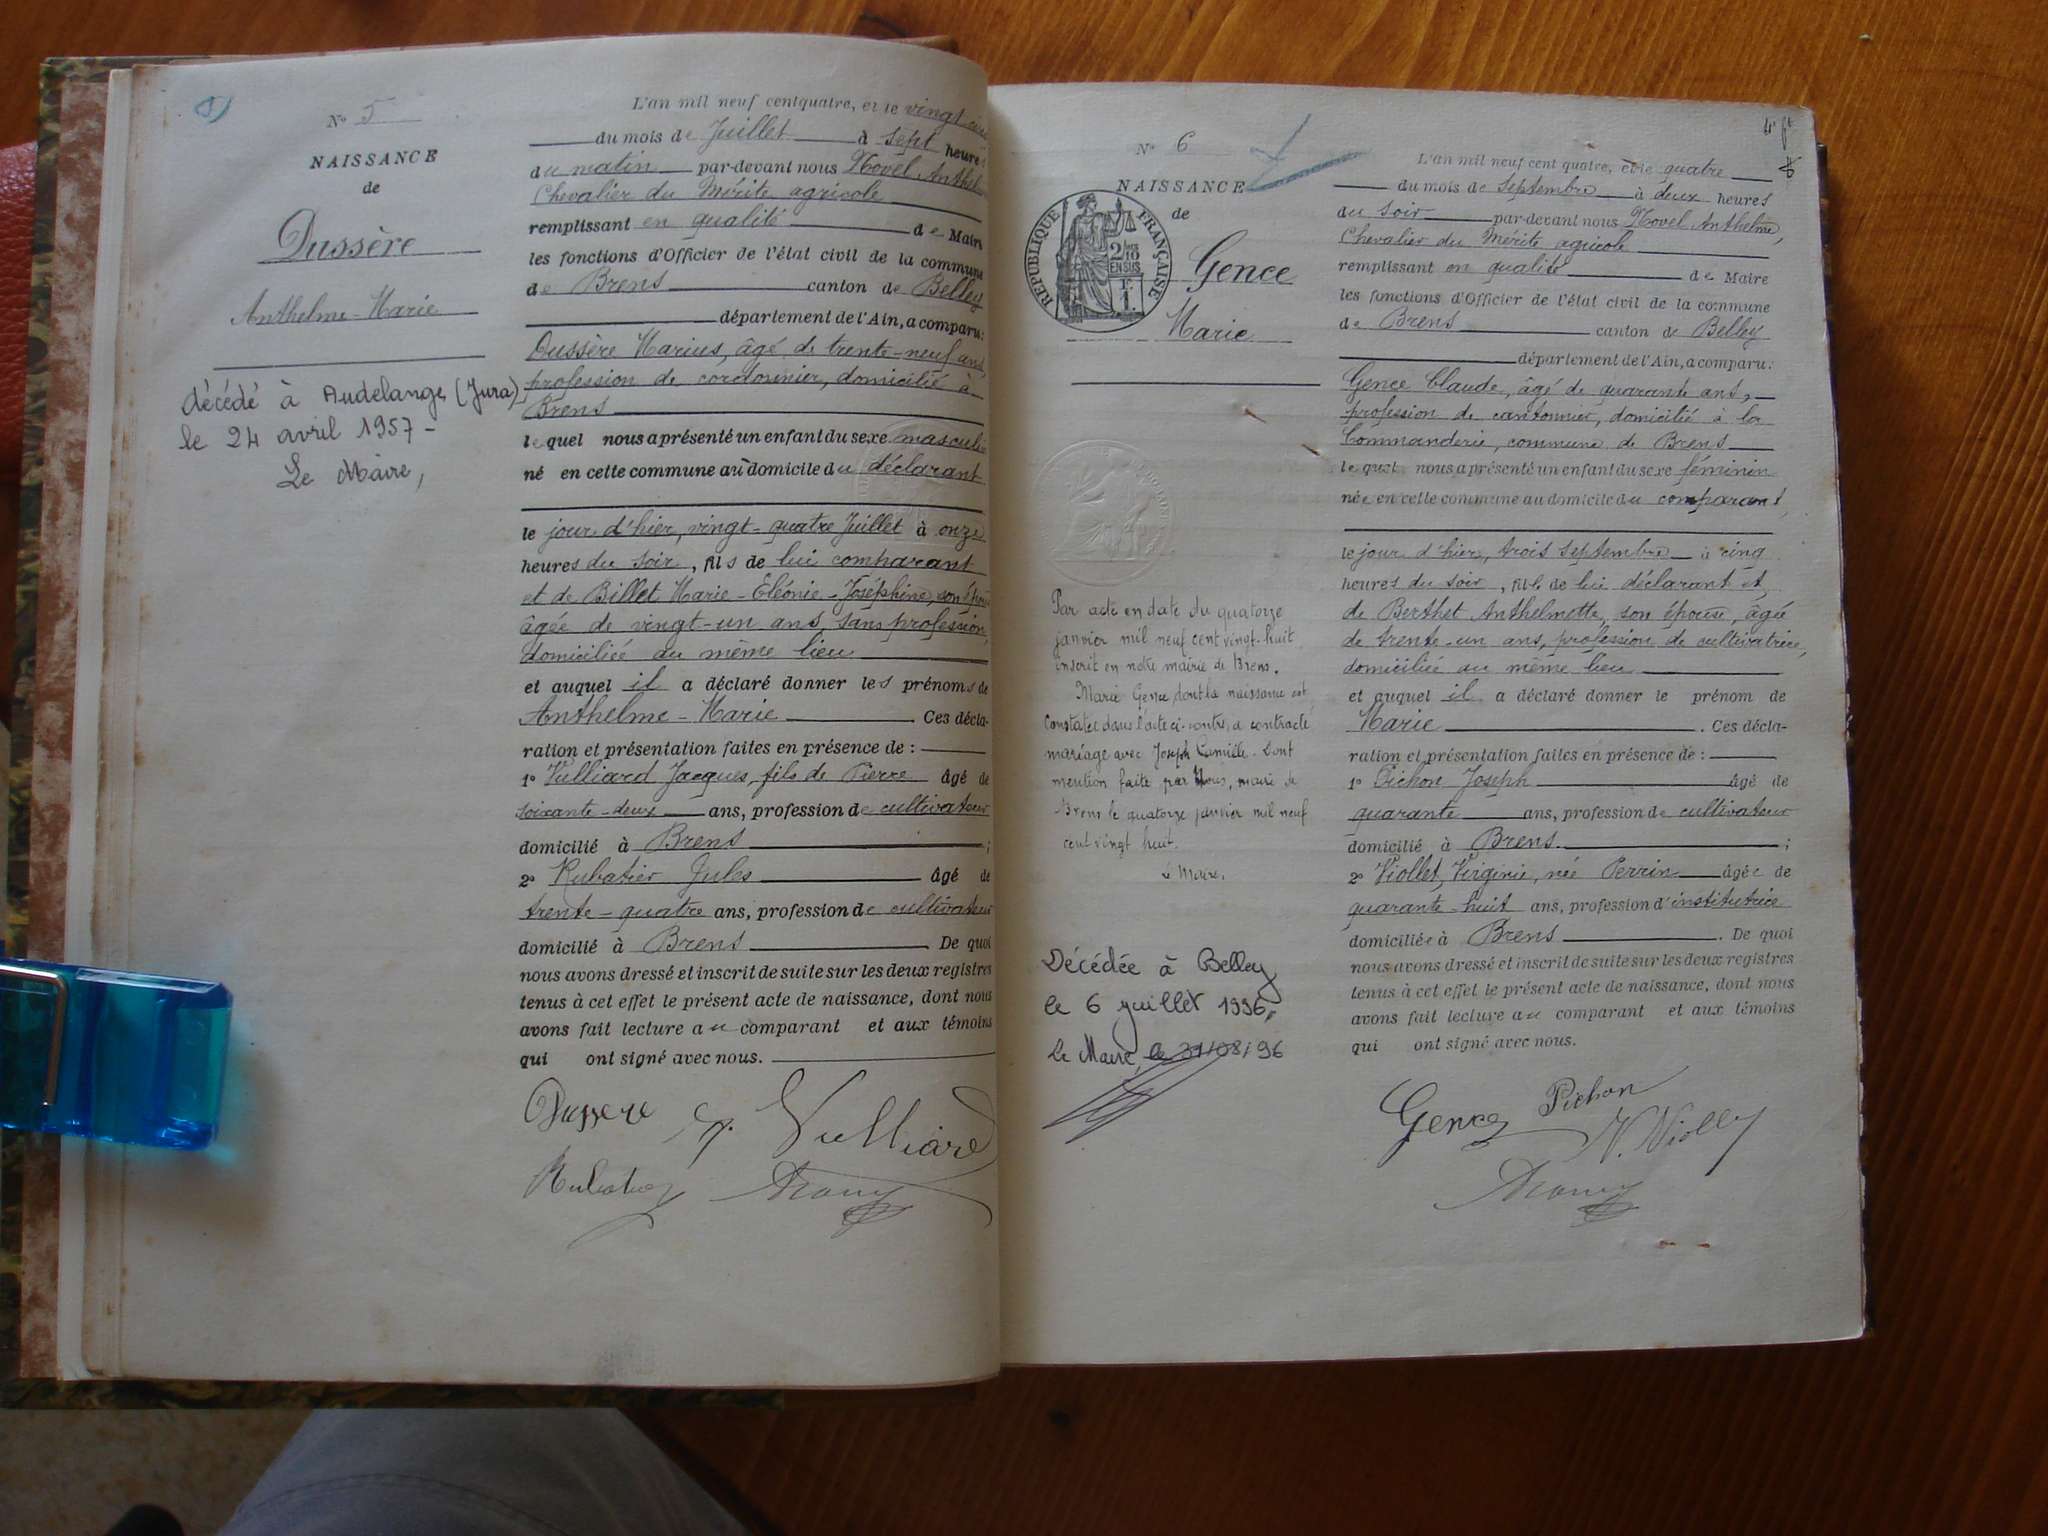 N° 5
NAISSANCE
de
Dussère
Anthelme-Marie
décédé à Audelange (Jura)
le 24 avril 1957 -
Le Maire,
L'an mil neuf cent quatre, et le vingt cinq
du mois de Juillet à sept heures
du matin par-devant nous Novel Anthel
Chevalier du Mérite agricole
remplissant en qualité de Maire
les fonctions d'Officier de l'état civil de la commune
de Brens canton de Belley
département de l'Ain, a comparu:
Dussère Marius, âgé de trente-neuf ans,
profession de cordonnier, domicilié à
Brens
lequel nous a présenté un enfant du sexe masculin
né en cette commune au domicile du déclarant
le jour d'hier, vingt-quatre Juillet à onze
heures du soir, fils de lui comparant
et de Billet Marie-Eléonie-Joséphine, son épouse
âgée de vingt-un ans, sans profession,
domiciliée au même lieu
et auquel il a déclaré donner les prénoms de
Anthelme-Marie. Ces décla-
ration et présentation faites en présence de :
1° Vulliard Jacques, fils de Pierre âgé de
soixante-deux ans, profession de cultivateur
domicilié à Brens ;
2° Rubatier Jules âgé de
trente-quatre ans, profession de cultivateur
domicilié à Brens. De quoi
nous avons dressé et inscrit de suite sur les deux registres
tenus à cet effet le présent acte de naissance, dont nous
avons fait lecture au comparant et aux témoins
qui ont signé avec nous.
Dussere J. Vulliard
Rubatier
4e ft
N° 6
NAISSANCE
de
RÉPUBLIQUE FRANÇAISE
2/10 EN SUS
Gence
Marie
Par acte en date du quatorze
janvier mil neuf cent vingt-huit
inscrit en notre mairie de Brens.
Marie Gence dont la naissance est
constatée dans l'acte ci-contre, a contracté
mariage avec Joseph Camille. Dont
mention faite par Nous, maire de
Brens le quatorze janvier mil neuf
cent vingt huit.
Le Maire.
Décédée à Belley
le 6 juillet 1996,
Le Maire, le 31/08/96
L'an mil neuf cent quatre, et le quatre
du mois de septembre à deux heures
du soir par-devant nous Novel Anthelme,
Chevalier du Mérite agricole
remplissant en qualité de Maire
les fonctions d'Officier de l'état civil de la commune
de Brens canton de Belley
département de l'Ain, a comparu:
Gence Claude, âgé de quarante ans,
profession de cantonnier, domicilié à la
Commanderie, commune de Brens
lequel nous a présenté un enfant du sexe féminin
née en cette commune au domicile du comparant,
le jour d'hier, trois septembre à cinq
heures du soir, fille de lui déclarant et
de Berthet Anthelmette, son épouse, âgée
de trente-un ans, profession de cultivatrice,
domiciliée au même lieu
et auquel il a déclaré donner le prénom de
Marie. Ces décla-
ration et présentation faites en présence de :
1° Pichon Joseph âgé de
quarante ans, profession de cultivateur
domicilié à Brens ;
2° Viollet, Virginie, née Perrin âgée de
quarante-huit ans, profession d'institutrice
domiciliée à Brens. De quoi
nous avons dressé et inscrit de suite sur les deux registres
tenus à cet effet le présent acte de naissance, dont nous
avons fait lecture au comparant et aux témoins
qui ont signé avec nous.
Gence Pichon
V. Viollet